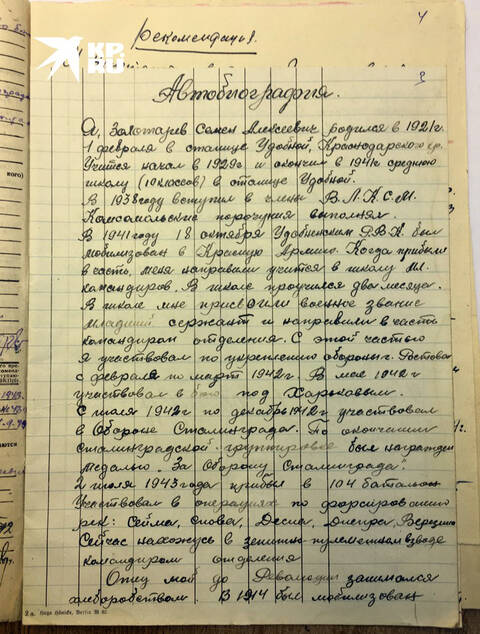 KP.RU
Рекомендация.
4
Автобиография.
Я, Золотарев Семен Алексеевич родился в 1921 г.
1 февраля в станице Удобной, Краснодарского кр.
Учится начал в 1929 г. и окончил в 1941 г. среднюю
школу (10 классов) в станице Удобной.
В 1938 году вступил в члены В.Л.К.С.М.
Комсомольские поручения выполнял.
В 1941 году 18 октября Удобненским Р.В.К. был
мобилизован в Красную Армию. Когда прибыли
в часть, меня направили учится в школу мл.
командиров. В школе проучился два месяца.
В школе мне присвоили военное звание
младший сержант и направили в часть
командиром отделения. С этой частью
я участвовал по укреплению обороны г. Ростова
с февраля по март 1942 г. В мае 1942 г
участвовал в бою под Харьковым.
С июля 1942 г по декабрь 1942 г участвовал
в Обороне Сталинграда. По окончании
Сталинградской группировке был награжден
медалью "За Оборону Сталинграда".
2 июля 1943 года прибыл в 104 батальон
Участвовал в операциях по форсированию
рек: Сейма, Снова, Десна, Днепра, Березина
Сейчас нахожусь в зенитно-пулеметном взводе
командиром отделения
Отец мой до Революции занимался
хлеборобством. В 1914 был мобилизован